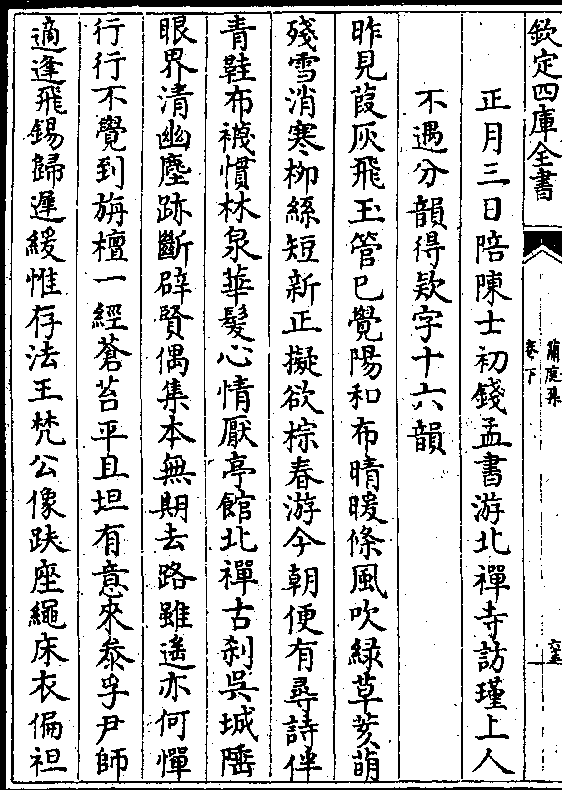 欽定四庫全書
蘭庭集
卷下
正月三日陪陳士初錢孟書游北禪寺訪瑾上人
不遇分韻得欵字十六韻
昨見葭灰飛玉管已覺陽和布晴暖條風吹綠草芽萌
殘雪消寒柳絲短新正擬欲探春游今朝便有尋詩伴
青鞋布襪慣林泉華髮心情厭亭館北禪古刹吳城隅
眼界清幽塵跡斷辟賢偶集本無期去路雖遙亦何憚
行行不覺到旃檀一經蒼苔平且坦有意來參孚尹師
適逢飛錫歸遲緩惟存法王梵公像趺座繩床衣偏袒